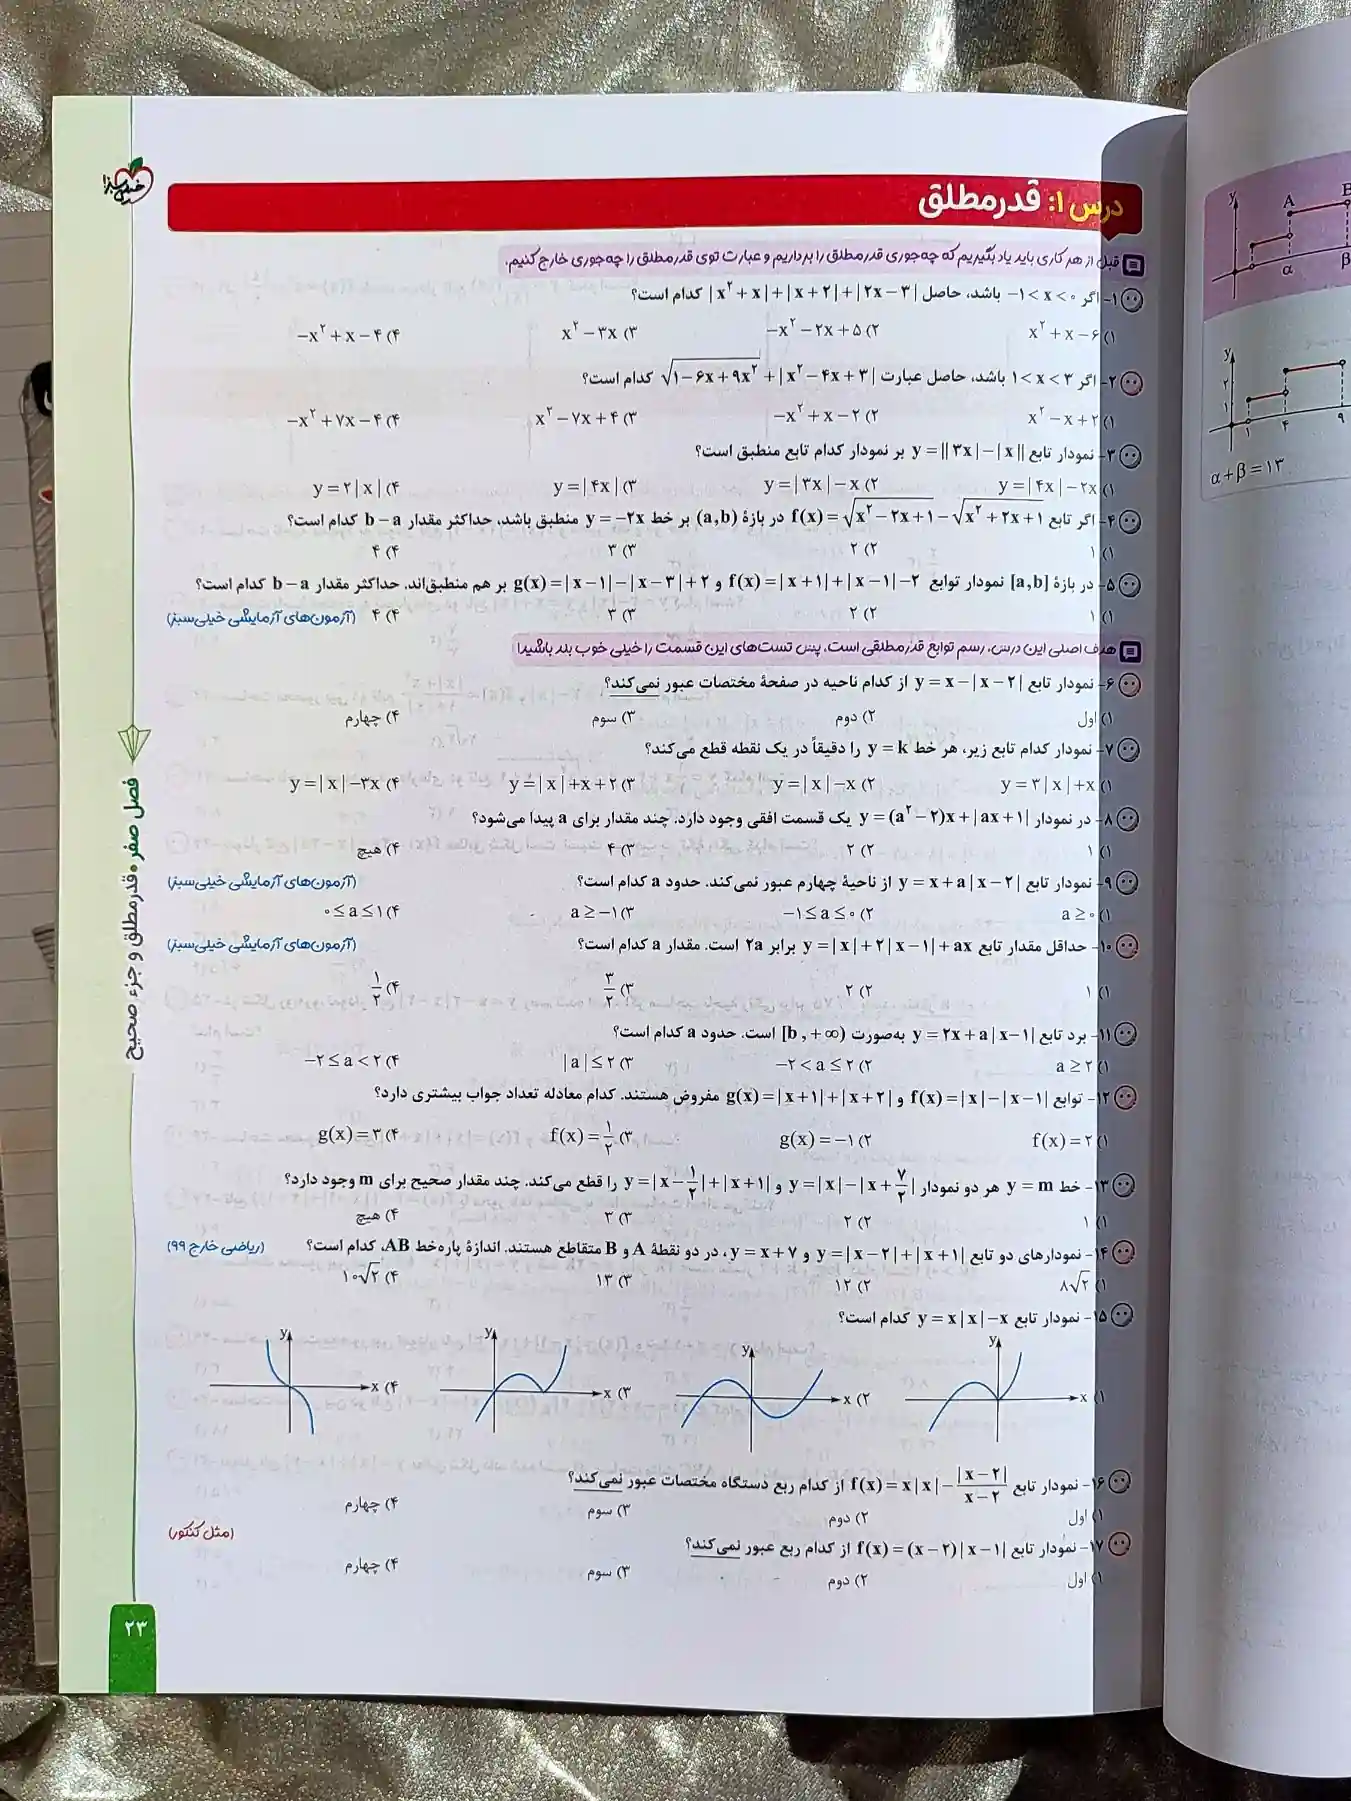 خیلی سبز
درس ۱: قدرمطلق
قبل از هر کاری باید یاد بگیریم که چه‌جوری قدرمطلق را برداریم و عبارت توی قدرمطلق را چه‌جوری خارج کنیم.
۱- اگر −۱ < x < ۰ باشد، حاصل |x² + x| + |x + ۲| + |۲x − ۳| کدام است؟
۱) x² + x − ۶ ۲) −x² − ۲x + ۵ ۳) x² − ۳x ۴) −x² + x − ۴
۲- اگر ۱ < x < ۳ باشد، حاصل عبارت √(۱ − ۶x + ۹x²) + |x² − ۴x + ۳| کدام است؟
۱) x² − x + ۲ ۲) −x² + x − ۲ ۳) x² − ۷x + ۴ ۴) −x² + ۷x − ۴
۳- نمودار تابع y = ||۳x| − |x|| بر نمودار کدام تابع منطبق است؟
۱) y = |۴x| − ۲x ۲) y = |۳x| − x ۳) y = |۴x| ۴) y = ۲|x|
۴- اگر تابع f(x) = √(x² − ۲x + ۱) − √(x² + ۲x + ۱) در بازهٔ (a, b) بر خط y = −۲x منطبق باشد، حداکثر مقدار b − a کدام است؟
۱) ۱ ۲) ۲ ۳) ۳ ۴) ۴
۵- در بازهٔ [a, b] نمودار توابع f(x) = |x + ۱| + |x − ۱| − ۲ و g(x) = |x − ۱| − |x − ۳| + ۲ بر هم منطبق‌اند. حداکثر مقدار b − a کدام است؟
۱) ۱ ۲) ۲ ۳) ۳ ۴) ۴ (آزمون‌های آزمایشی خیلی‌سبز)
هدف اصلی این درس، رسم توابع قدرمطلقی است، پس تست‌های این قسمت را خیلی خوب بلد باشید!
۶- نمودار تابع y = x − |x − ۲| از کدام ناحیه در صفحهٔ مختصات عبور نمی‌کند؟
۱) اول ۲) دوم ۳) سوم ۴) چهارم
۷- نمودار کدام تابع زیر، هر خط y = k را دقیقاً در یک نقطه قطع می‌کند؟
۱) y = ۳|x| + x ۲) y = |x| − x ۳) y = |x| + x + ۲ ۴) y = |x| − ۳x
۸- در نمودار y = (a² − ۲)x + |ax + ۱| یک قسمت افقی وجود دارد. چند مقدار برای a پیدا می‌شود؟
۱) ۱ ۲) ۲ ۳) ۴ ۴) هیچ
۹- نمودار تابع y = x + a|x − ۲| از ناحیهٔ چهارم عبور نمی‌کند. حدود a کدام است؟ (آزمون‌های آزمایشی خیلی‌سبز)
۱) a ≥ ۰ ۲) −۱ ≤ a ≤ ۰ ۳) a ≥ −۱ ۴) ۰ ≤ a ≤ ۱
۱۰- حداقل مقدار تابع y = |x| + ۲|x − ۱| + ax برابر ۲a است. مقدار a کدام است؟ (آزمون‌های آزمایشی خیلی‌سبز)
۱) ۱ ۲) ۲ ۳) ۳/۲ ۴) ۱/۲
۱۱- برد تابع y = ۲x + a|x − ۱| به‌صورت [b, +∞) است. حدود a کدام است؟
۱) a ≥ ۲ ۲) −۲ < a ≤ ۲ ۳) |a| ≤ ۲ ۴) −۲ ≤ a < ۲
۱۲- توابع f(x) = |x| − |x − ۱| و g(x) = |x + ۱| + |x + ۲| مفروض هستند. کدام معادله تعداد جواب بیشتری دارد؟
۱) f(x) = ۲ ۲) g(x) = −۱ ۳) f(x) = ۱/۲ ۴) g(x) = ۳
۱۳- خط y = m هر دو نمودار y = |x| − |x + ۷/۲| و y = |x − ۱/۲| + |x + ۱| را قطع می‌کند. چند مقدار صحیح برای m وجود دارد؟
۱) ۱ ۲) ۲ ۳) ۳ ۴) هیچ
۱۴- نمودارهای دو تابع y = |x − ۲| + |x + ۱| و y = x + ۷، در دو نقطهٔ A و B متقاطع هستند. اندازهٔ پاره‌خط AB، کدام است؟ (ریاضی خارج ۹۹)
۱) ۸√۲ ۲) ۱۲ ۳) ۱۳ ۴) ۱۰√۲
۱۵- نمودار تابع y = x|x| − x کدام است؟
۱) x y ۲) x y ۳) x y ۴) x y
۱۶- نمودار تابع f(x) = x|x| − |x − ۲|/(x − ۲) از کدام ربع دستگاه مختصات عبور نمی‌کند؟
۱) اول ۲) دوم ۳) سوم ۴) چهارم
۱۷- نمودار تابع f(x) = (x − ۲)|x − ۱| از کدام ربع عبور نمی‌کند؟ (مثل کنکور)
۱) اول ۲) دوم ۳) سوم ۴) چهارم
فصل صفر • قدرمطلق و جزء صحیح
۲۳
y A B
α β
y
۲
۱
۱ ۴ ۹
α + β = ۱۳